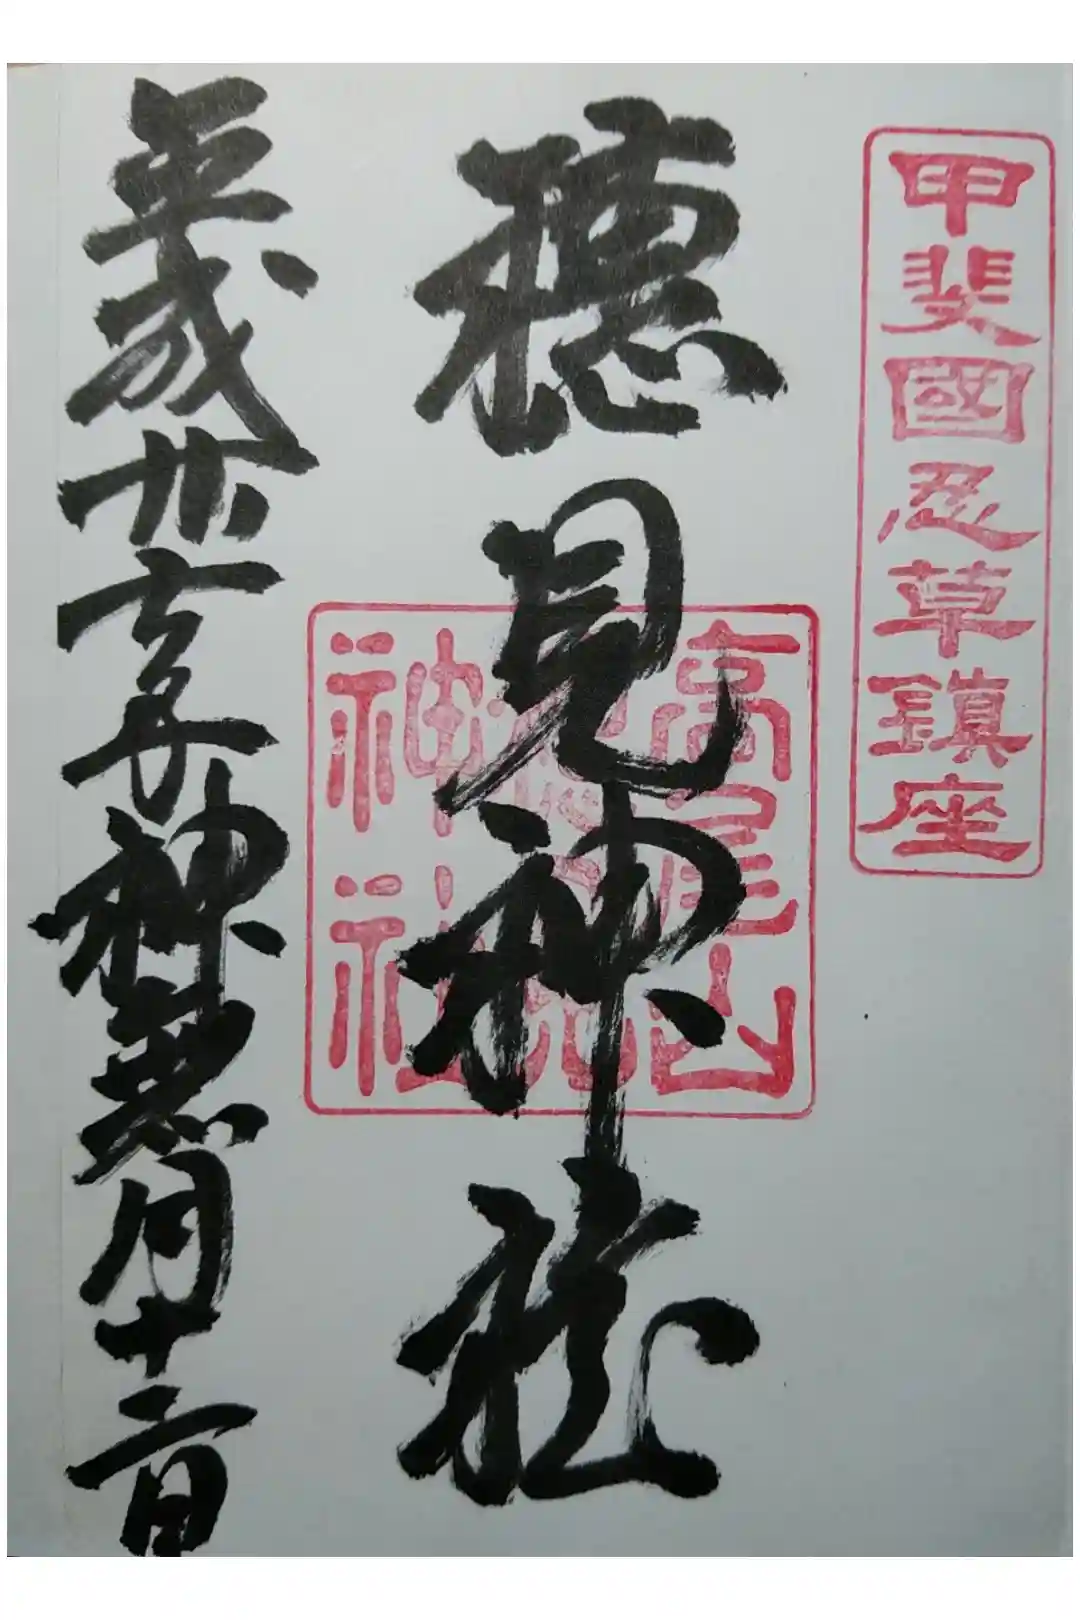 甲斐國忍草鎮座
穂見神社
高尾山
神社
平成廿
年神無月十二日